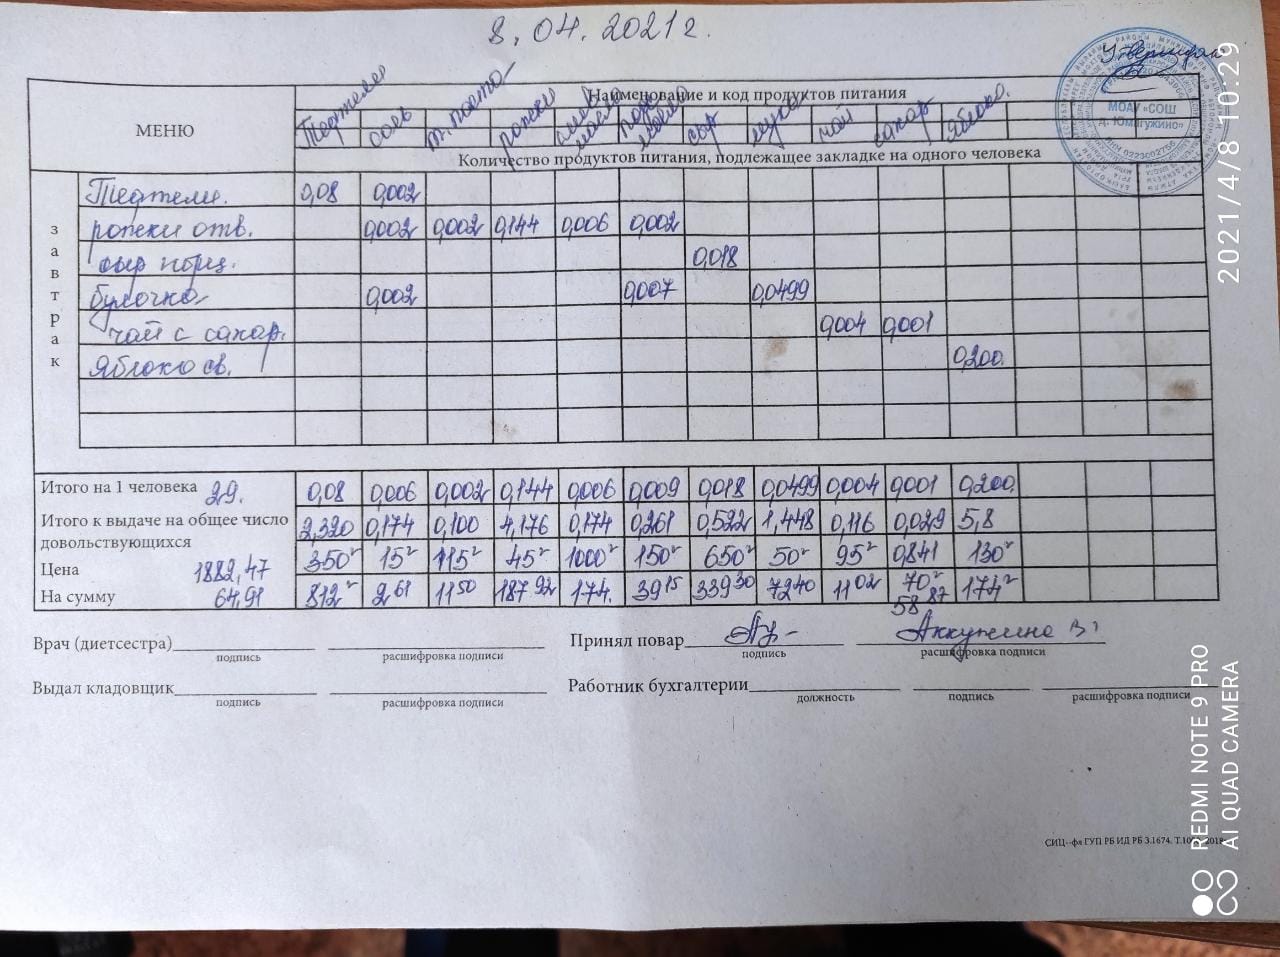 8.04.2021 г.
Утверждаю
МОАУ «СОШ
д. Юмагужино»
МЕНЮ
Наименование и код продуктов питания
Тефтели соль т. паста рожки слив масло сыр мука чай сахар яблоко
Количество продуктов питания, подлежащее закладке на одного человека
завтрак
Тефтели. 0,08 0,002
рожки отв. 0,002 0,002 0,144 0,006 0,002
сыр порц. 0,018
булочка 0,002 0,007 0,0499
чай с сахар. 0,004 0,001
Яблоко св. 0,200
Итого на 1 человека 29. 0,08 0,006 0,002 0,144 0,006 0,009 0,018 0,0499 0,004 0,001 0,200
Итого к выдаче на общее число
довольствующихся 2,320 0,174 0,100 4,176 0,174 0,261 0,522 1,448 0,116 0,029 5,8
Цена 1882,47 350 15 115 45 1000 150 650 50 95 0,841 130
На сумму 64,91 812 2 61 11 50 187 92 174. 39 15 339 30 72 40 11 02 70 174
58 87
Врач (диетсестра) Принял повар Аккужина З.
подпись расшифровка подписи подпись расшифровка подписи
Выдал кладовщик Работник бухгалтерии
подпись расшифровка подписи должность подпись расшифровка подписи
СИЦ--фл ГУП РБ ИД РБ 3.1674. Т.
2021/4/8 10:29
REDMI NOTE 9 PRO
AI QUAD CAMERA